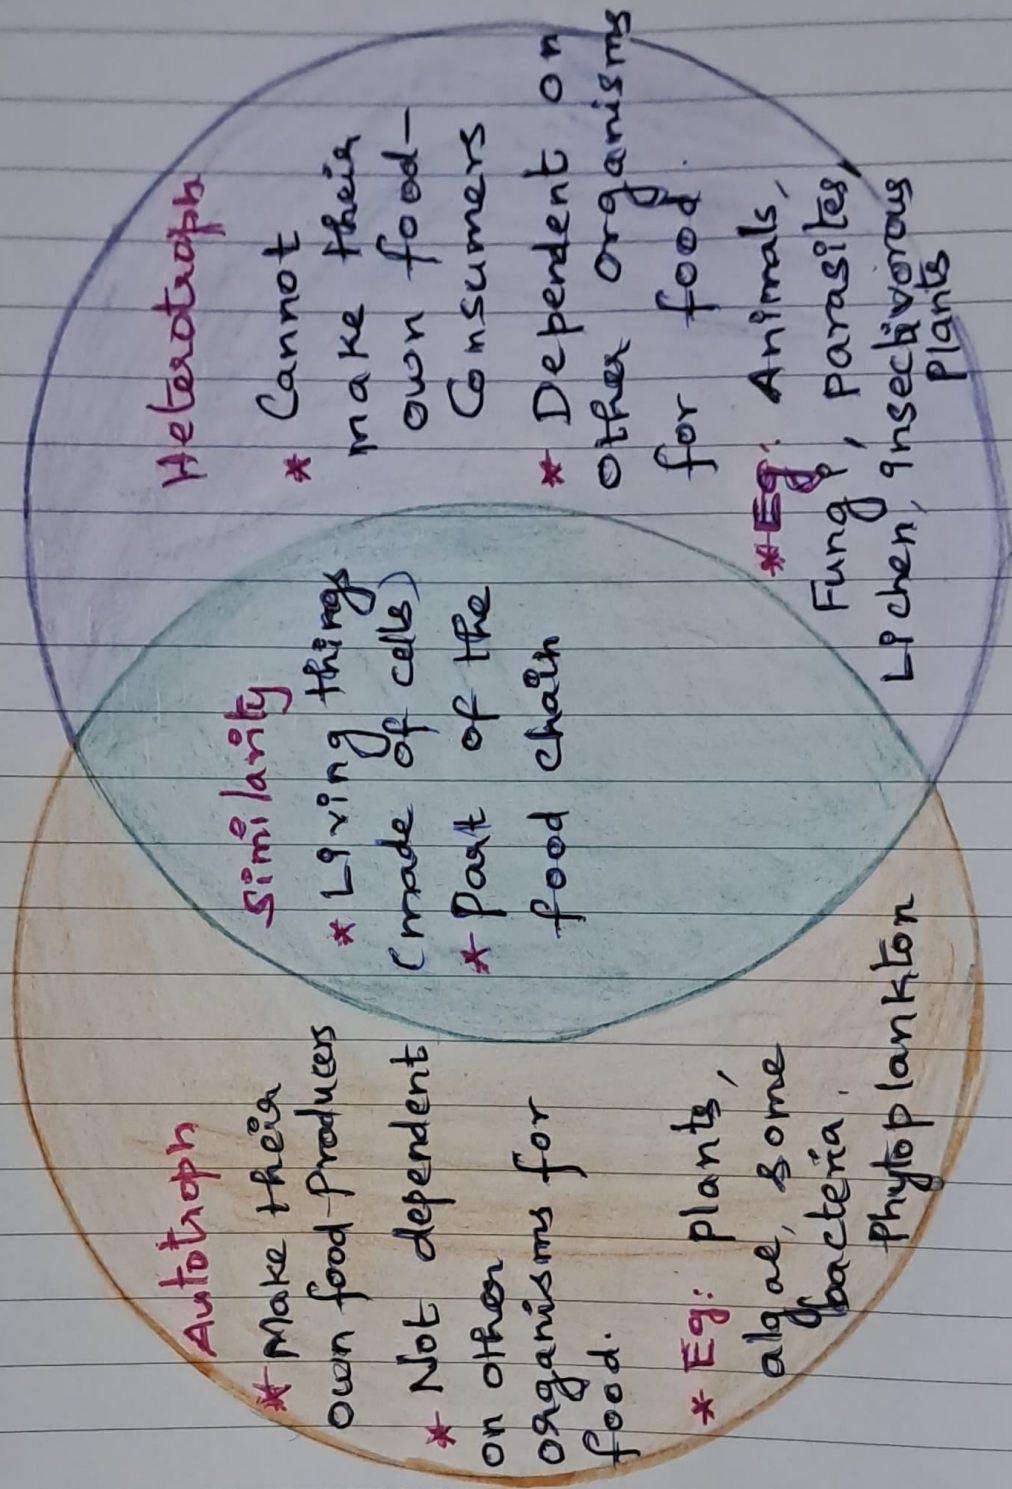 Autotroph
* Make their
own food-Producers
* Not dependent
on other
organisms for
food.
* Eg: plants,
algae, some
bacteria.
Phytoplankton
Similarity
* Living things
(made of cells)
* Part of the
food chain
Heterotroph
* Cannot
make their
own food-
Consumers
* Dependent on
other organisms
for food.
* Eg: Animals,
Fungi, parasites,
Lichen, insectivorous
plants